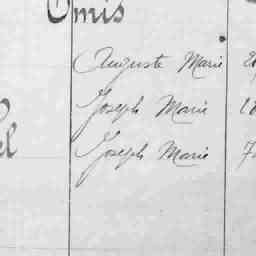 Omis
Auguste Marie
Joseph Marie
el Joseph Marie